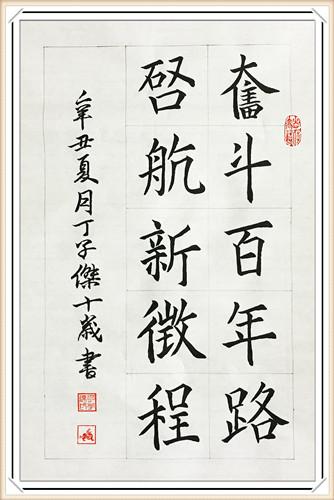 奮斗百年路
啓航新徵程
辛丑夏月丁子傑十歲書